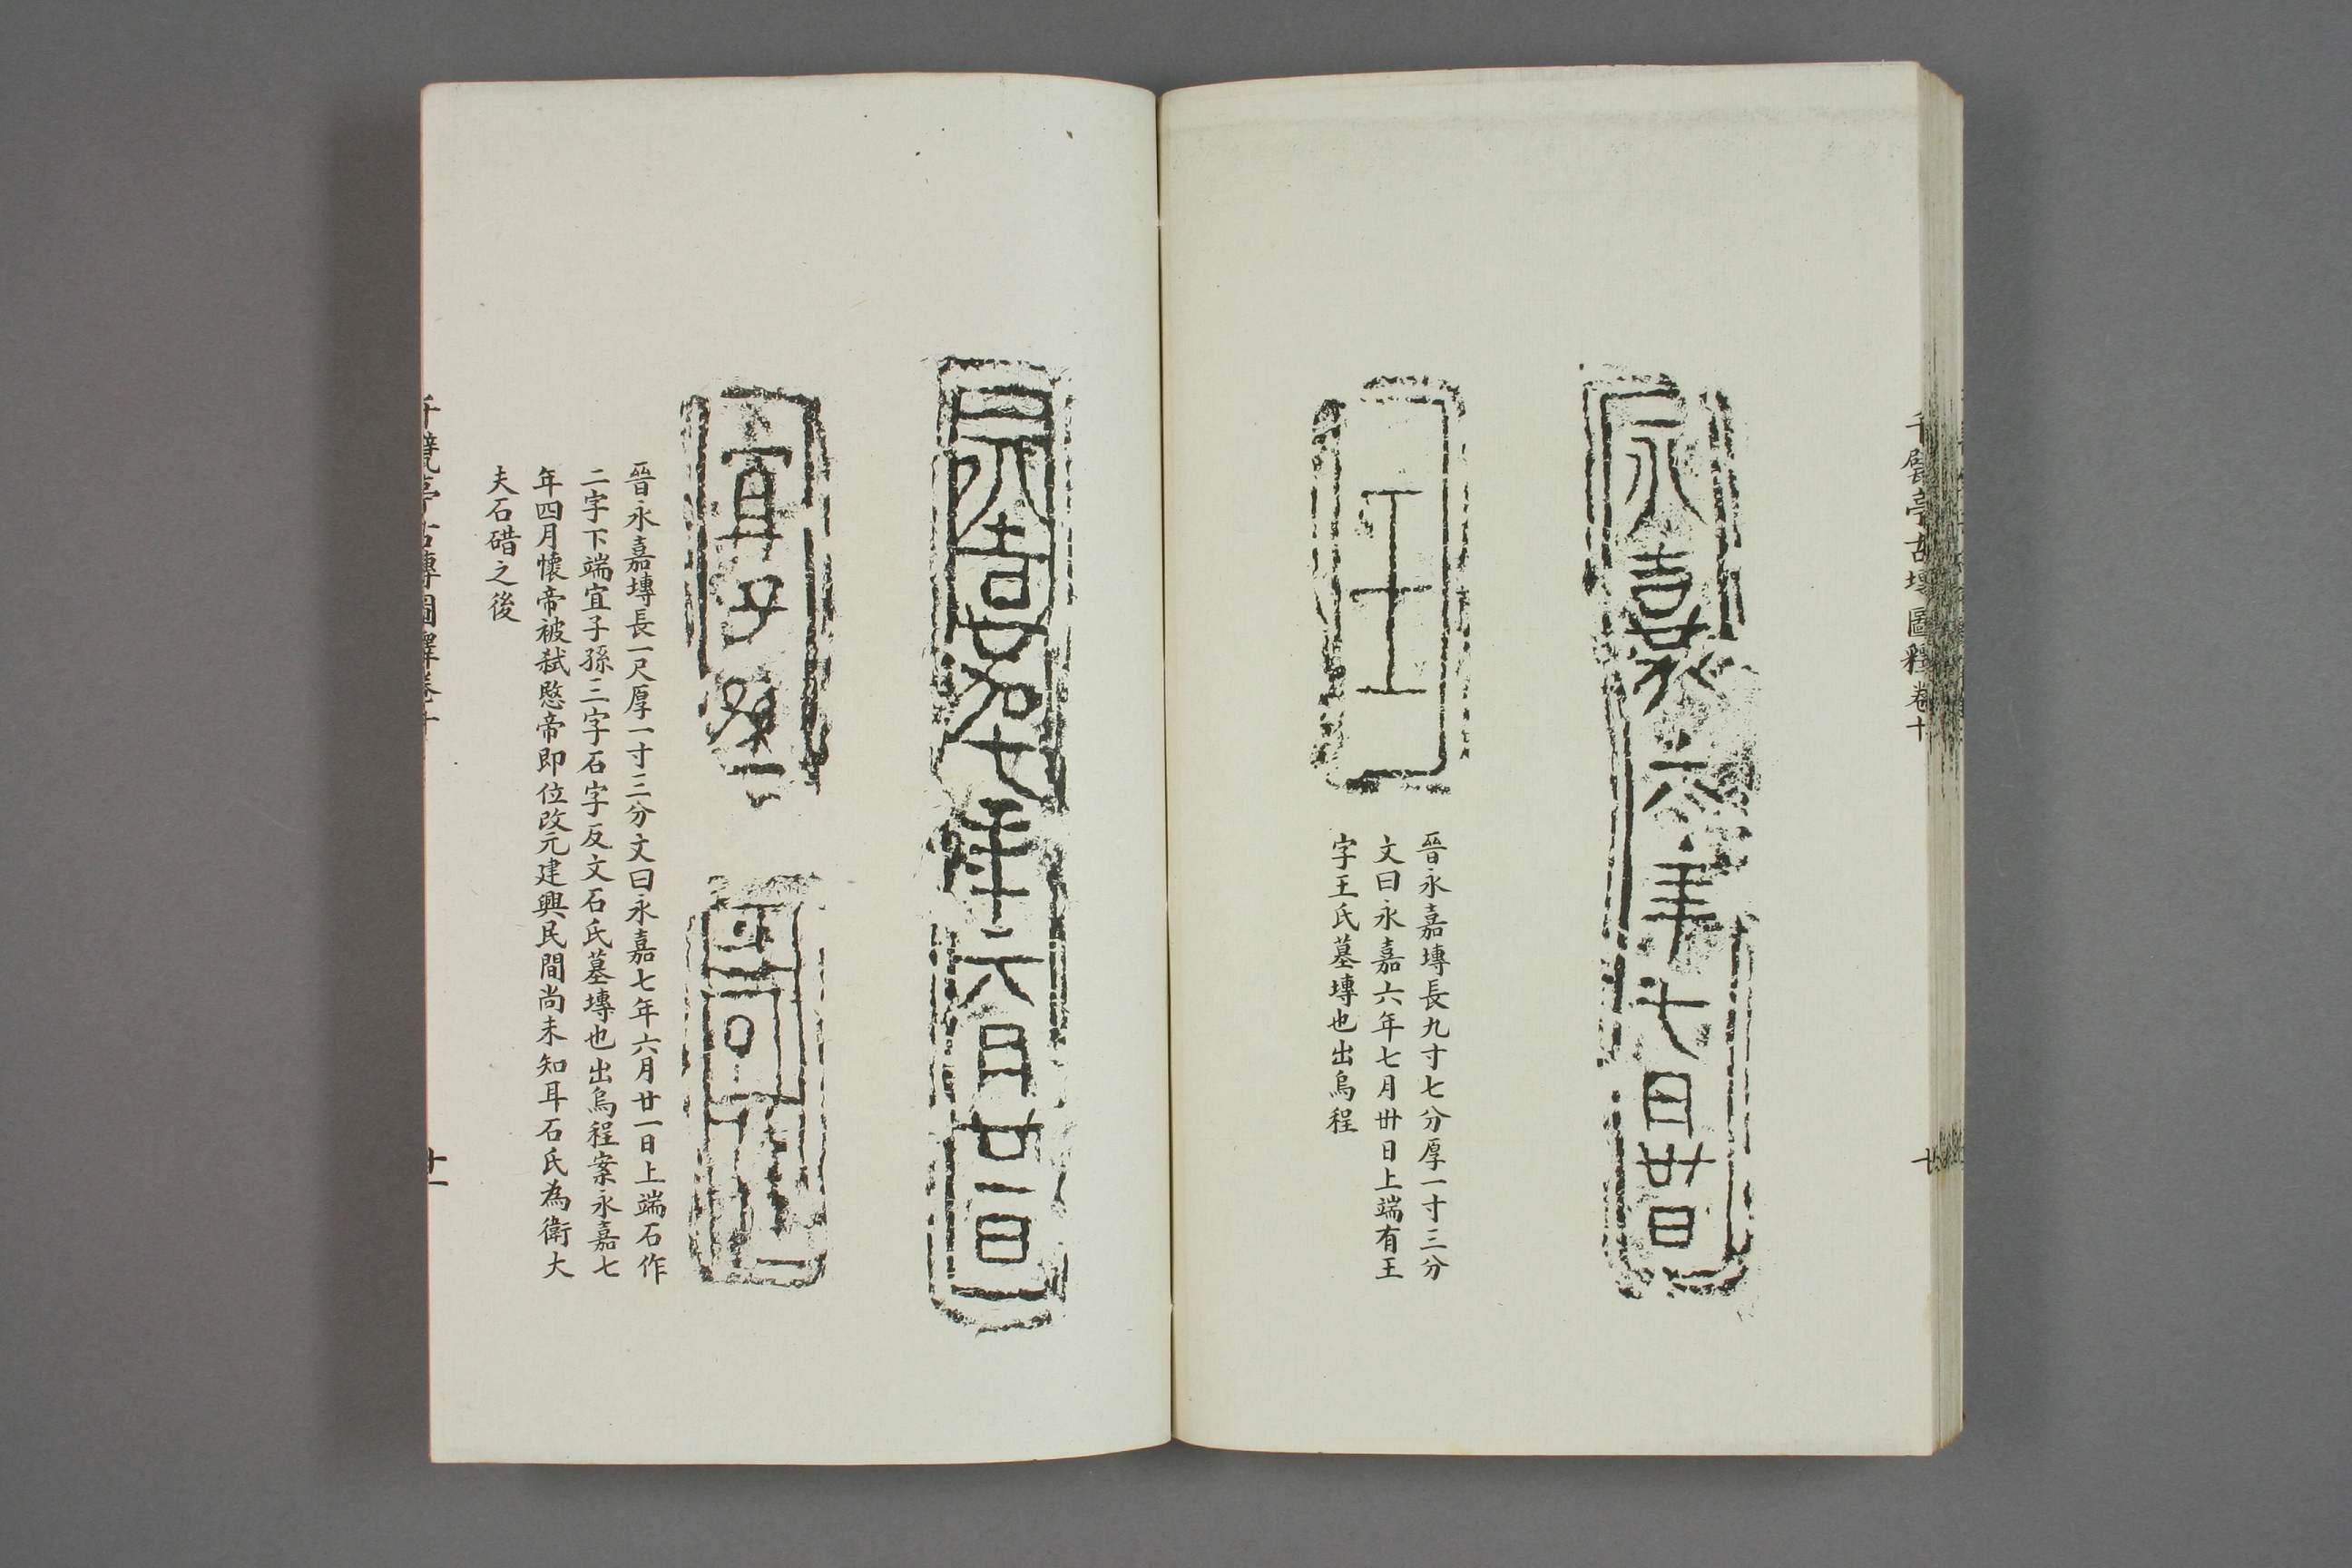 千甓亭古塼圖釋卷十
永嘉六年七月卅日
王
晉永嘉塼長九寸七分厚一寸三分
文曰永嘉六年七月卅日上端有王
字王氏墓塼也出烏程
永嘉七年六月廿一日
宜子孫
石作
晉永嘉塼長一尺厚一寸三分文曰永嘉七年六月廿一日上端石作
二字下端宜子孫三字石字反文石氏墓塼也出烏程案永嘉七
年四月懷帝被弒愍帝即位改元建興民間尚未知耳石氏為衛大
夫石碏之後
千甓亭古塼圖釋卷十
十一